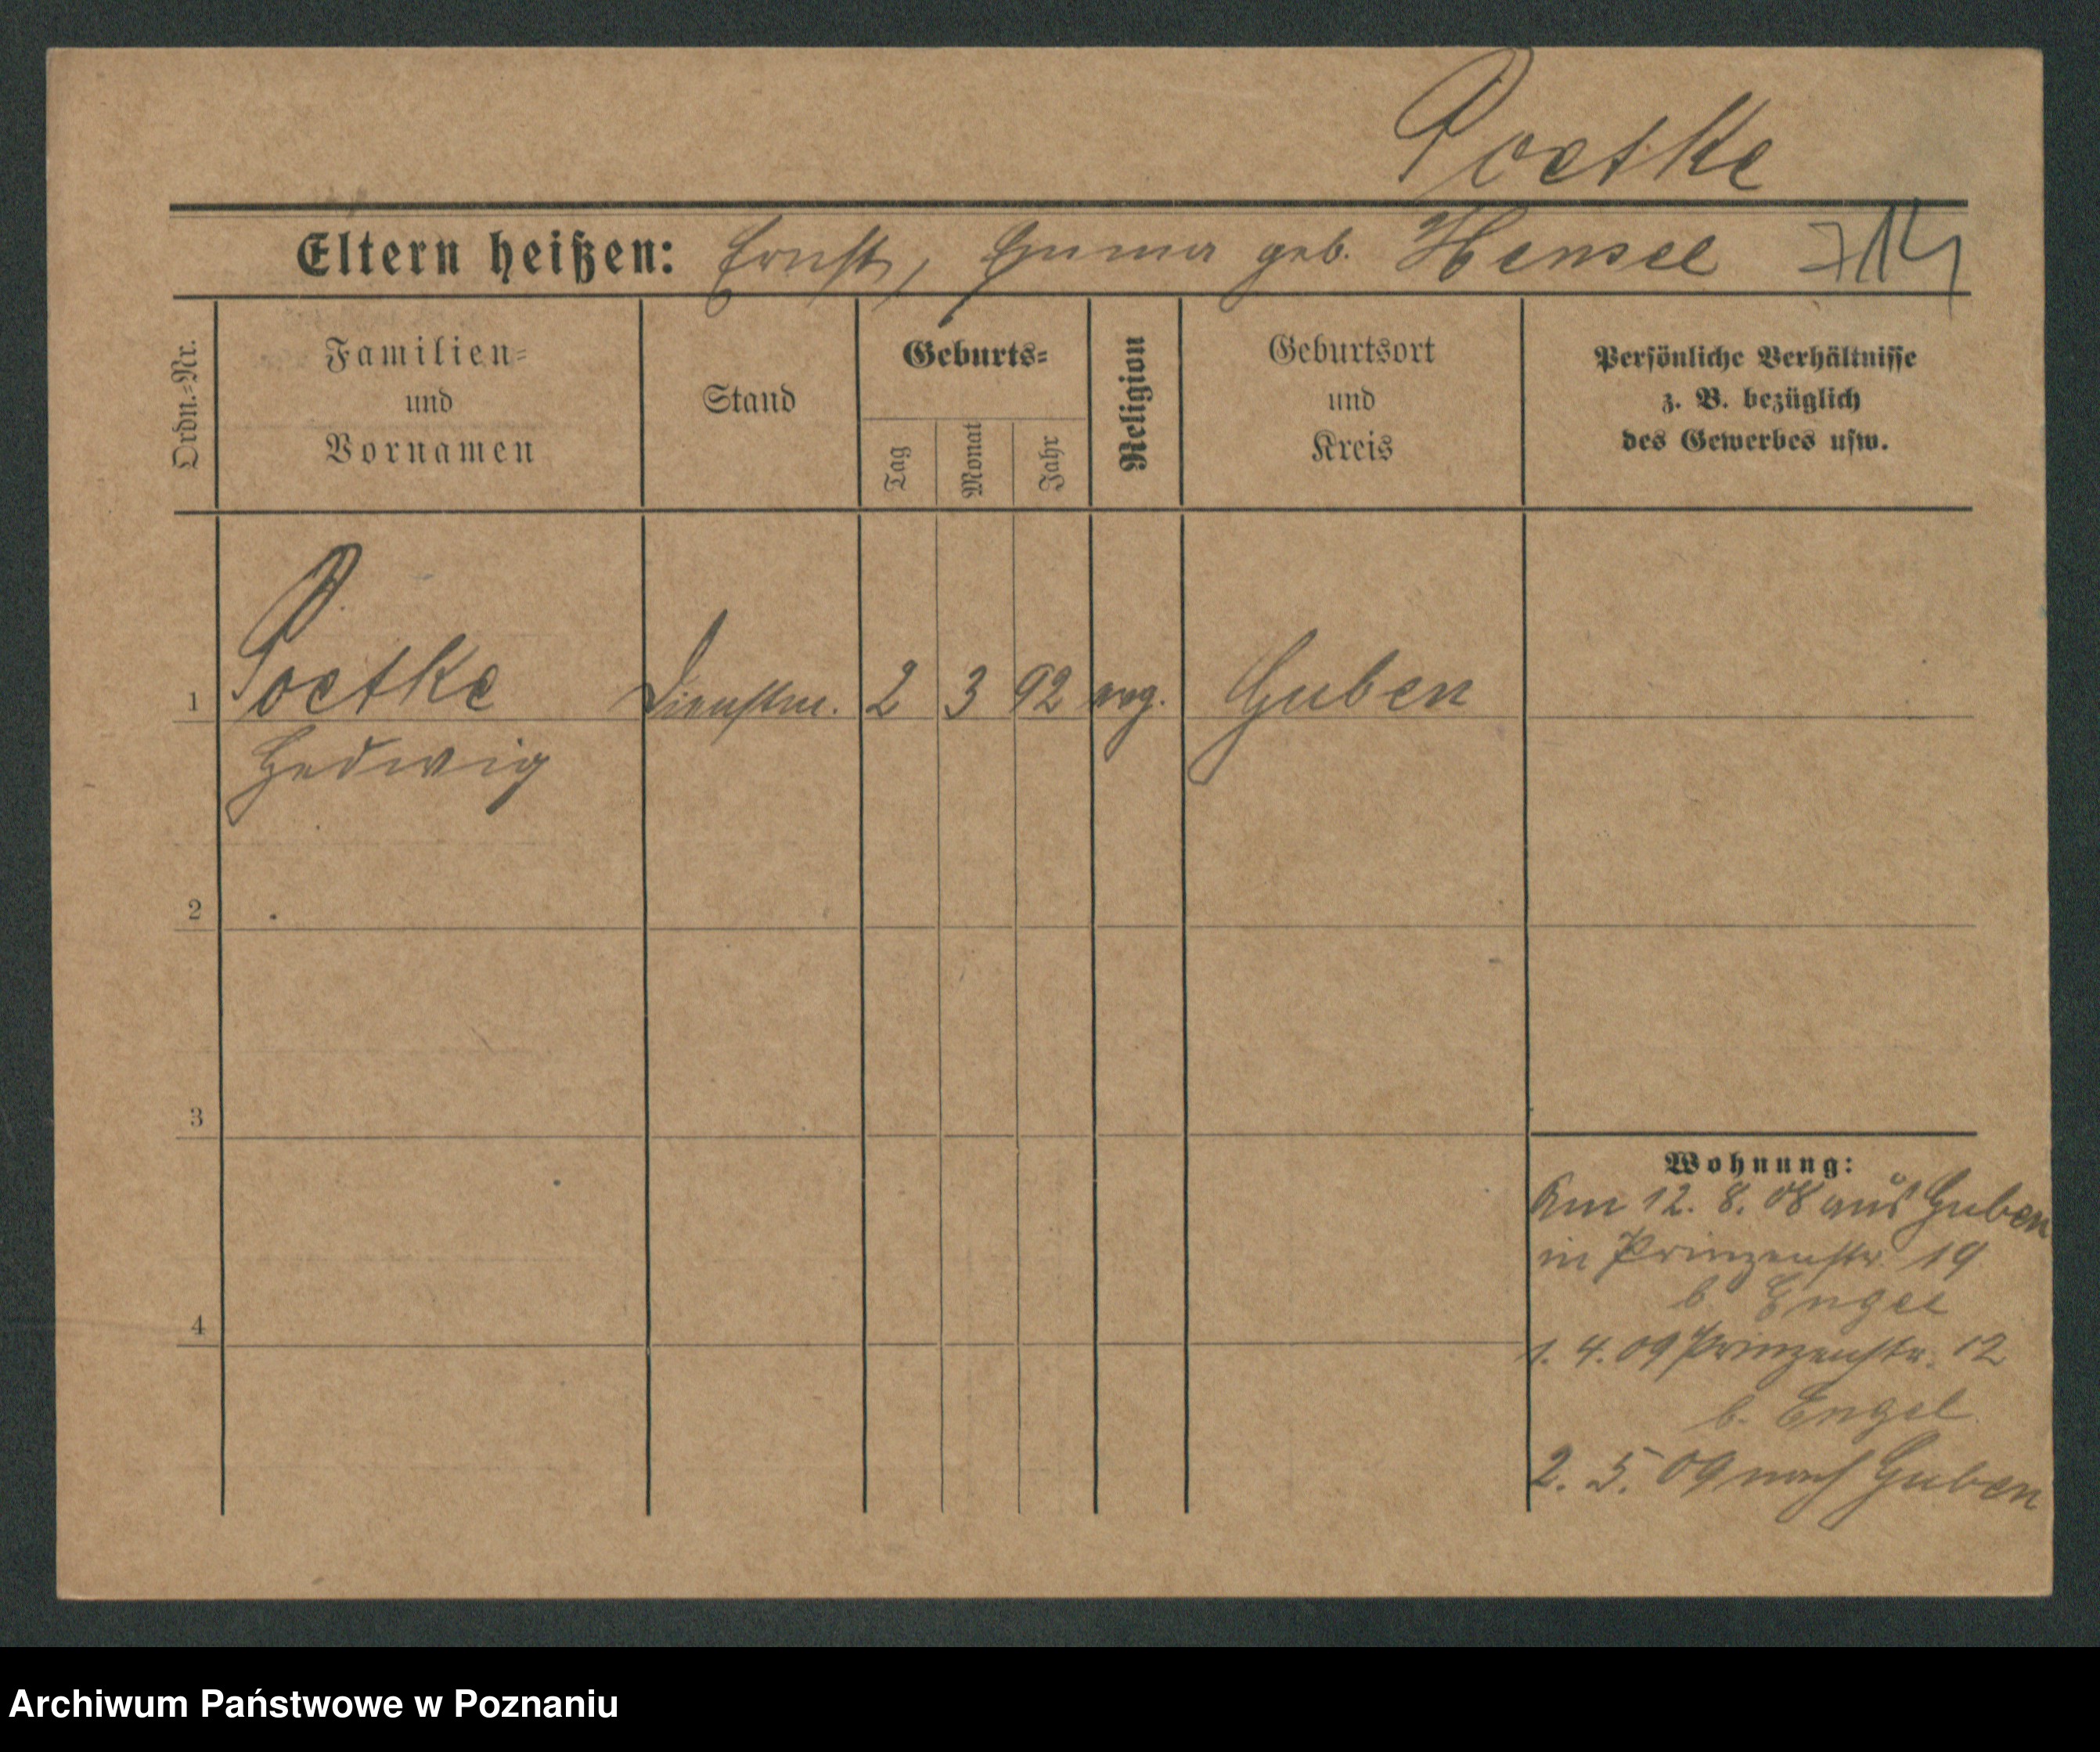 Poetke
Eltern heißen: Ernst, Emma geb. Hensel 714
Ordn.=Nr.
Familien=
und
Vornamen
Stand
Geburts=
Tag
Monat
Jahr
Religion
Geburtsort
und
Kreis
Persönliche Verhältnisse
z. B. bezüglich
des Gewerbes usw.
1 Poetke Dienstm. 2 3 92 evg. Guben
Hedwig
2
3
4
Wohnung:
Am 12. 8. 08 aus Guben
in Prinzenstr. 19
b. Engel
1. 4. 09 Prinzenstr. 12
b. Engel
2. 5. 09 nach Guben
Archiwum Państwowe w Poznaniu